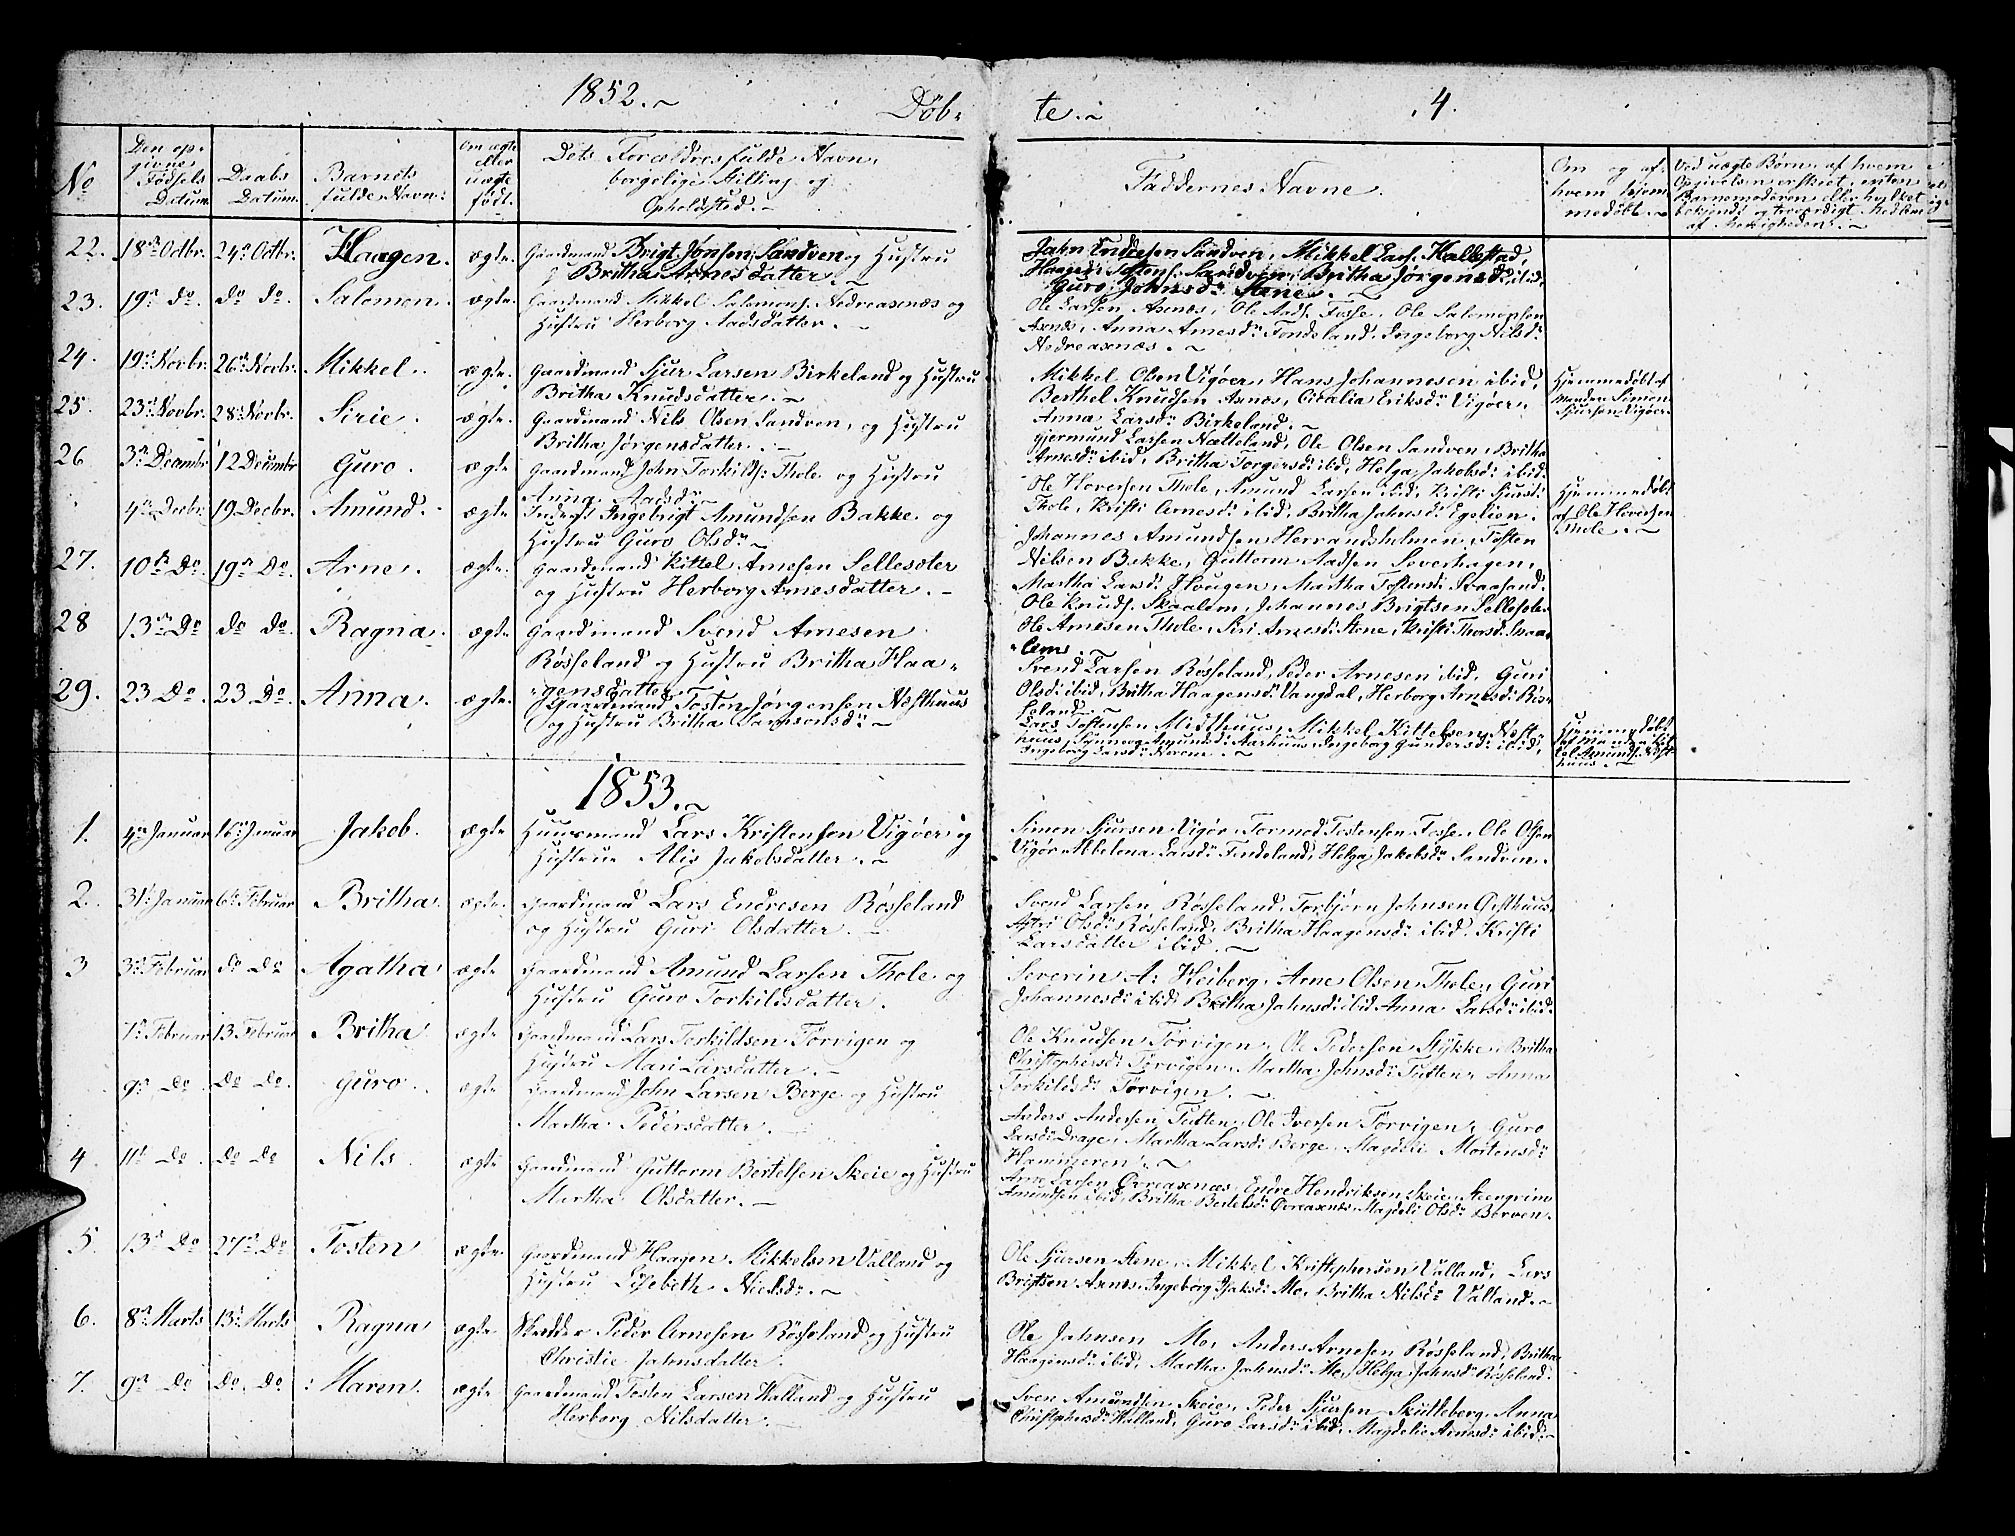 1852.
Døb-
te.
4.
No
Den op-
givne
Fødsels
Datum.
Daabs
Datum.
Barnets
fulde Navn.
Om ægte
eller
uægte
født.
Dets Forældres fulde Navn,
borgelige Stilling og
Opholdsted.
Faddernes Navne.
Om og af
hvem hjem-
medøbt.
Ved uægte Børn, af hvem
Opgivelsen er skeet, enten
Barnemoderen eller hvilket
bekjendt og troværdigt Medlem
af Menigheden.
22. 18n Octbr. 24n Octbr. Haagen. ægte. Gaardmand Brigt Jonsen Sandven og Hustru
Britha Arnesdatter.
John Endresen Sandven, Mikkel Lars. Kallestad,
Haagen Tostens. Sandven, Britha Jørgensd: ibid,
Guro Johnsd: Stene.
23. 19n do. do do. Salomon. ægte. Gaardmand Mikkel Salomons. Nedreaxnæs og
Hustru Herborg Aadsdatter.
Ole Larsen Axnæs, Ole Aads. Fosse, Ole Salomonsen
Axnæs, Anna Arnesd: Tondeland, Ingeborg Nilsd:
Nedreaxnæs.
24. 19n Novbr. 26n Novbr. Mikkel. ægte. Gaardmand Sjur Larsen Birkeland og Hustru
Britha Knudsdatter.
Mikkel Olsen Vigøer, Hans Johannesen ibid,
Berthel Knudsen Axnæs, Cicalia Eriksd: Vigøer,
Anna Larsd: Birkeland.
Hjemmedøbt af
Manden Simon
Sjursen Vigøer.
25. 23n Novbr. 28n Novbr. Sirie. ægte. Gaardmand Nils Olsen Sandven, og Hustru
Britha Jørgensdatter.
Gjermund Larsen Nætteland, Ole Olsen Sandven, Britha
Arnesd: ibid, Britha Torgersd: ibid, Helga Jakobsd: ibid.
26 3n Decembr 12 Decembr Guro. ægte Gaardmand John Torkilds: Thole og Hustru
Anna Aadsd:
Ole Haversen Thole, Amund Larsen ibid, Kristi Sjursd:
Thole, Kristi Arnesd: ibid, Britha Johnsd: Egelien.
Hjemmedøbt
af Ole Haversen
Thole.
4n Decbr. 19 Decbr. Amund. ægte Inderst Ingebrigt Amundsen Bakke og
Hustru Guro Olsd:
Johannes Amundsen Herrandsholmen, Tosten
Nilsen Bakke, Guttorm Aadsen Soverhagen,
Martha Larsd: Hougen, Martha Tostensd: Svaasand.
27. 10n Do. 19n Do. Arne. ægte. Gaardmand Kittel Arnesen Sellesæter
og Hustru Herborg Arnesdatter.
Ole Knuds. Skaalem, Johannes Brigtsen Sellesæter
Ole Arnesen Thole, Siri Arnesd: Stene, Kristi Thorsd: Skaa-
lem.
28 13n Do do do. Ragna. ægte Gaardmand Svend Arnesen
Røsseland og Hustru Britha Haa-
gensdatter.
Svend Larsen Røsseland, Peder Arnesen ibid, Guri
Olsd: ibid, Britha Haagensd: Vangdal, Herborg Arnesd: Røs-
seland.
29. 23 Do. 23 Do. Anna. ægte. Gaardmand Tosten Jørgensen Næsthuus
og Hustru Britha Samsonsd:
Lars Tostensen Midthuus, Mikkel Kittelsen Næst-
huus, Sønneva Amundsd: Aarhuus, Ingeborg Gundersd: ibid,
Ingeborg Larsd:
Hjemmedøbt
huus.
1853.
1. 4n Januar 16n Januar Jakob. ægte Huusmand Lars Kristensen Vigøer og
Hustrue Alis Jakobsdatter.
Simon Sjursen Vigør, Tormod Tostensen Fosse, Ole Olsen
Vigør, Abbelona Larsd: Findeland, Helga Jakobsd: Sandven.
2. 31n Januar 6n Februar Britha. ægte. Gaardmand Lars Endresen Røsseland
og Hustru Guri Olsdatter.
Svend Larsen Røsseland, Torbjørn Johnsen Østhuus,
Astri Olsd: Røsseland, Britha Haagensd: ibid, Kristi
Larsdatter ibid.
3 3n Februar do Do Agatha ægte Gaardmand Amund Larsen Thole og
Hustru Guro Torkildsdatter.
Severin A: Heiberg, Arne Olsen Thole, Guri
Johannesd: ibid, Britha Johnsd: ibid Anna Larsd: ibid.
7n Februar 13 Februar Britha ægte Gaardmand Lars Torkildsen Tørvigen og
Hustru Mari Larsdatter.
Ole Knudsen Tørvigen, Ole Pedersen Stykke, Britha
Christophersd: Tørvigen, Martha Johnsd: Tutten, Anna
Torkildsd: Tørvigen.
9n Do Do Do. Guro. ægte Gaardmand John Larsen Berge og Hustru
Martha Pedersdatter.
Anders Andersen Tutten, Ole Iversen Tørvigen, Guro
Larsd: Drage, Martha Larsd: Berge, Magdeli Mortensd:
Hammeren.
4 11n Do. Do Do Nils. ægte Gaardmand Guttorm Bertelsen Skeie og Hustru
Martha Olsdatter.
Arne Larsen Øvreaxnæs, Endre Hendriksen Skeie, Steengrim
Amundsen ibid, Britha Bertelsd: Øvreaxnæs, Magdeli Olsd: Børven.
5. 13n Do 27n Do Tosten ægte. Gaardmand Haagen Mikkelsen Valland og
Hustru Lisebeth Nielsd:
Ole Sjursen Stene, Mikkel Kristophersen Valland, Lars
Brigtsen Axnæs, Ingeborg Isaksd: Mo, Britha Nilsd: Valland.
6. 8n Marts 13n Marts Ragna ægte Skrædder Peder Arnesen Røsseland og Hustru
Christie Johnsdatter.
Ole Johnsen Mo, Anders Arnesen Røsseland, Britha
Haagensd: ibid, Martha Johnsd: Mo, Helga Johnsd: Røsseland.
7. 9n Do Do. Do. Maren. ægte Gaardmand Tosten Larsen Halland og Hustru
Herborg Nilsdatter.
Sven Amundsen Skeie, Peder Sjursen Skutleberg, Anna
Christophersd: Halland, Guro Larsd: ibid, Magdelie Arnesd: ibid.